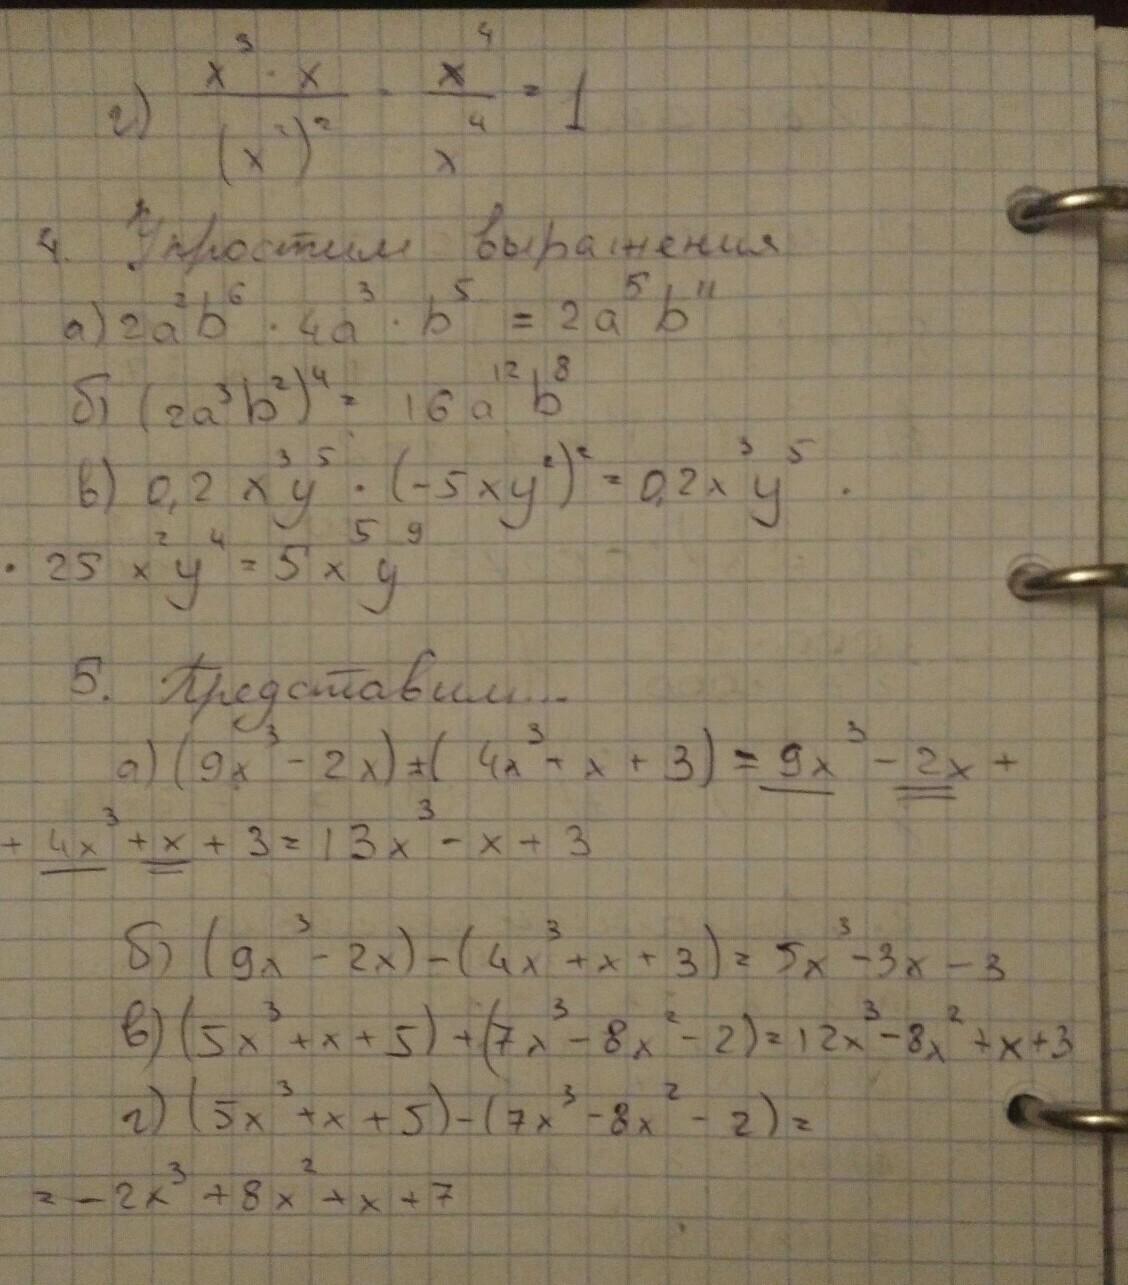 г) x³ · x / (x²)² = x⁴ / x⁴ = 1
4. Упростим выражения
а) 2a²b⁶ · 4a³ · b⁵ = 2a⁵b¹¹
б) (2a³b²)⁴ = 16a¹²b⁸
в) 0,2x³y⁵ · (-5xy²)² = 0,2x³y⁵ ·
· 25x²y⁴ = 5x⁵y⁹
5. Представим...
а) (9x³ - 2x) + (4x³ + x + 3) = 9x³ - 2x +
+ 4x³ + x + 3 = 13x³ - x + 3
б) (9x³ - 2x) - (4x³ + x + 3) = 5x³ - 3x - 3
в) (5x³ + x + 5) + (7x³ - 8x² - 2) = 12x³ - 8x² + x + 3
г) (5x³ + x + 5) - (7x³ - 8x² - 2) =
= -2x³ + 8x² + x + 7